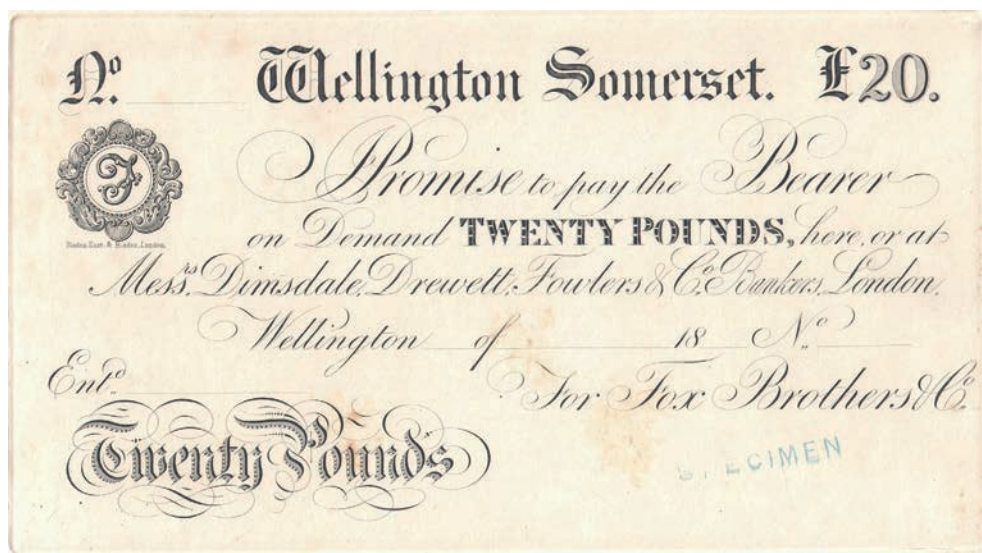 Nº Wellington Somerset. £20.
I Promise to pay the Bearer
on Demand TWENTY POUNDS, here, or at
Messrs. Dimsdale, Drewett, Fowlers & Co. Bankers, London.
Wellington of 18 Nº
Entd.
For Fox Brothers & Co.
Twenty Pounds
SPECIMEN
F
London.